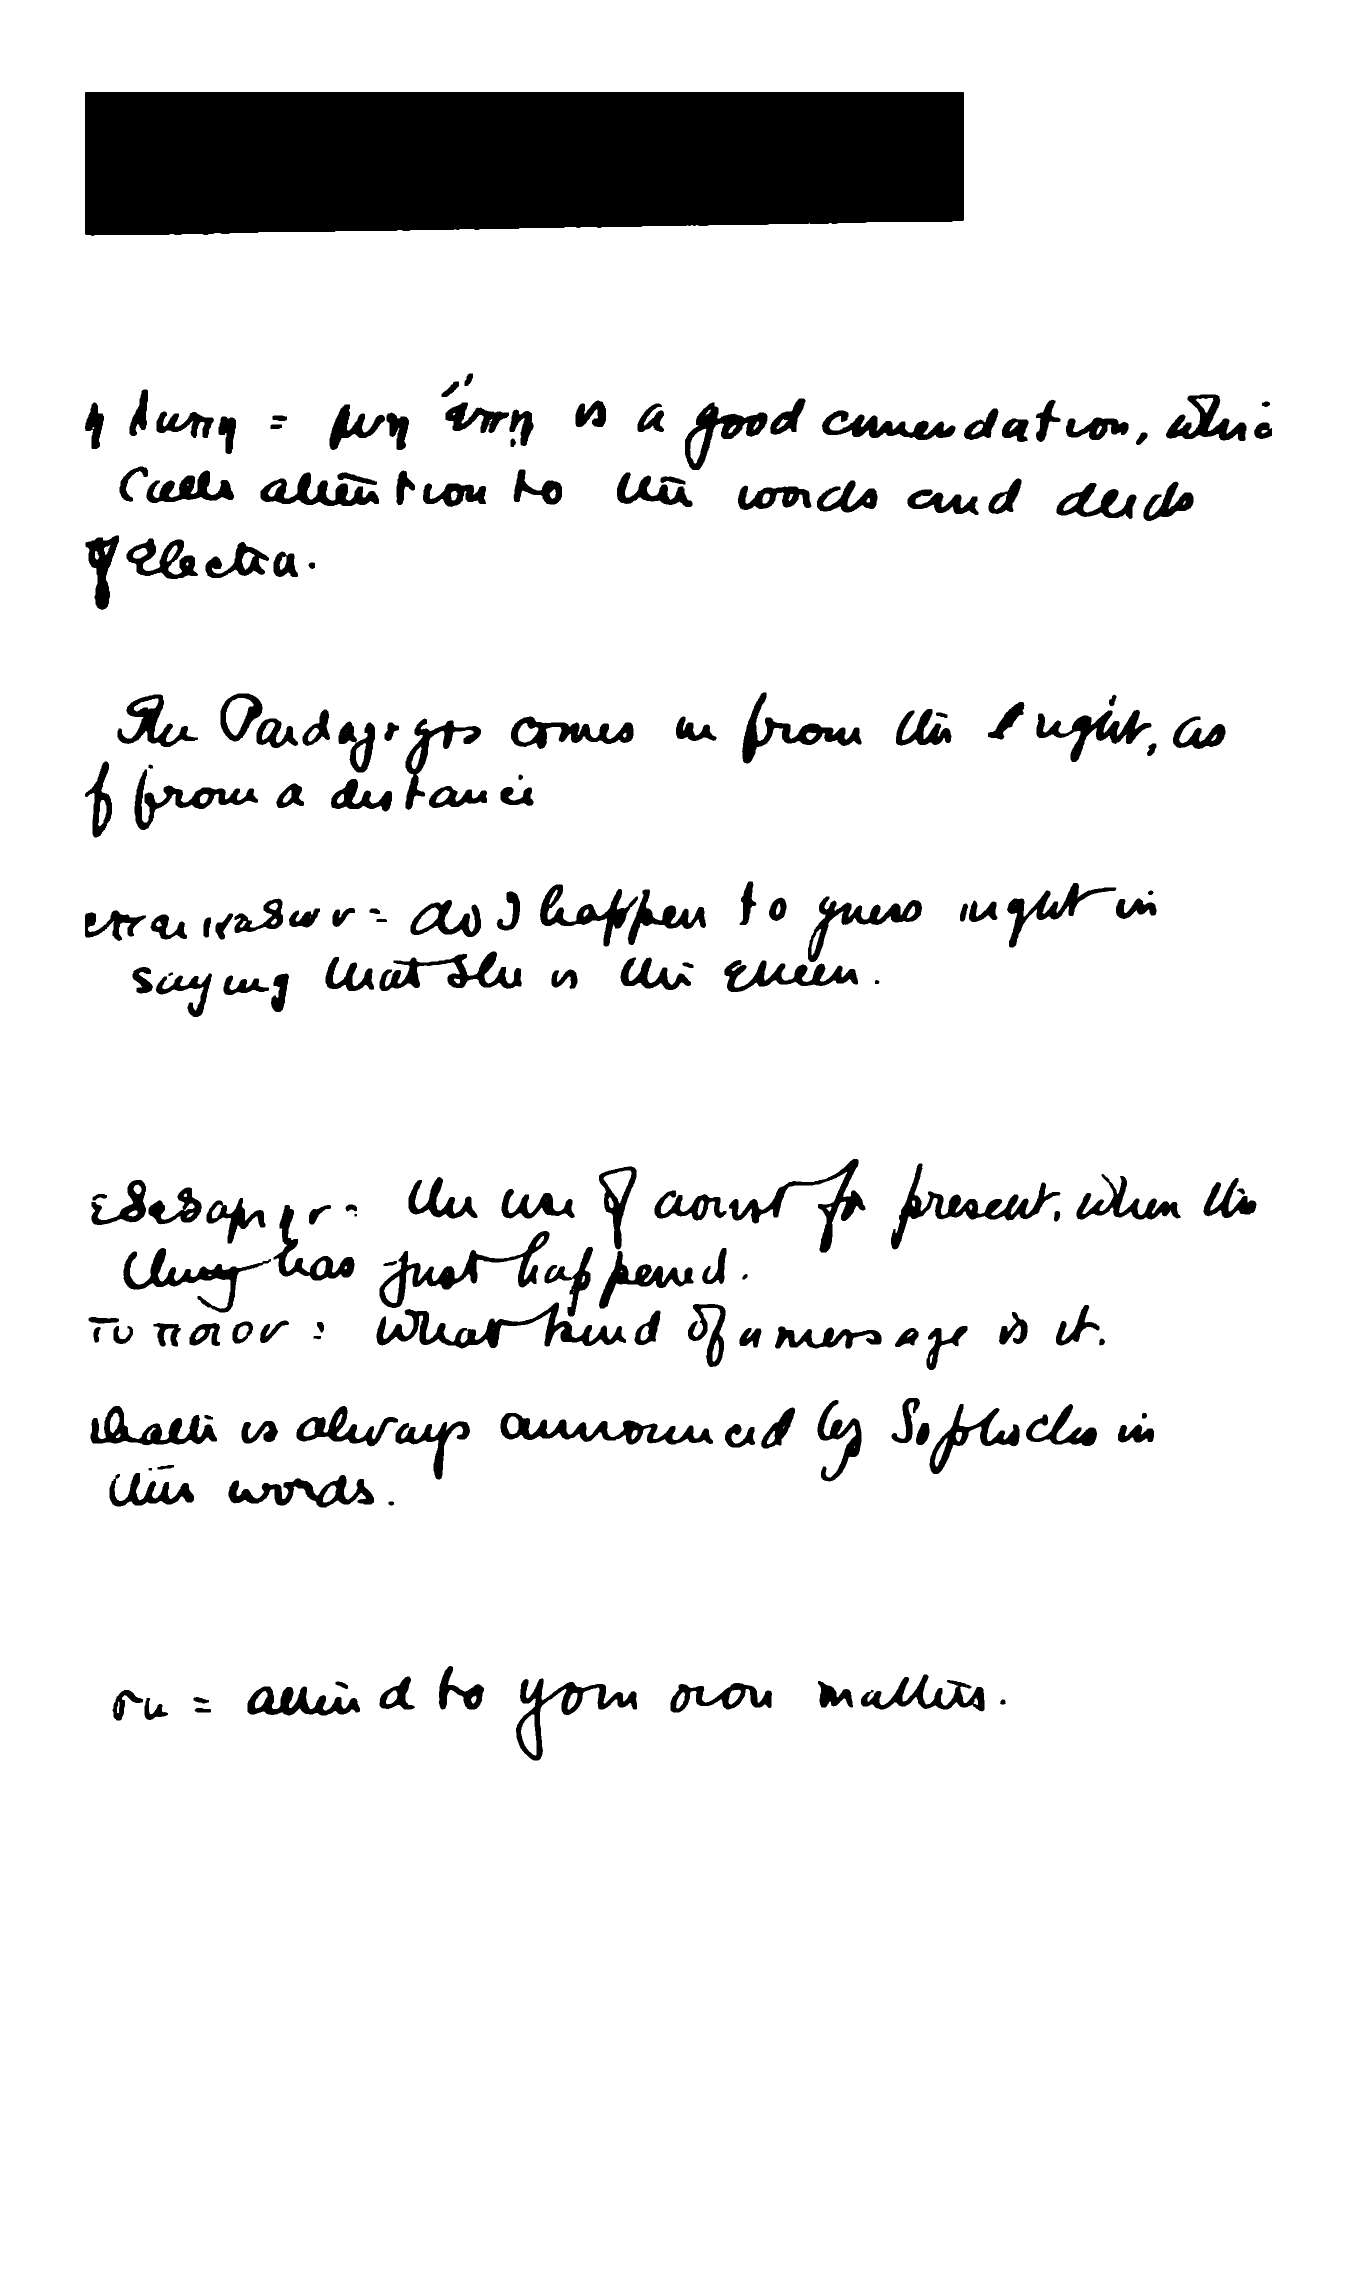 η λυπη = μεν ἔπη is a good emendation, which
calls attention to the words and deeds
of Electra.
The Paedagogos comes in from the right, as
if from a distance
επεικαζων = do I happen to guess right in
saying that she is the queen.
εδεξαμην = the use of aorist for present, when the
thing has just happened.
το ποιον : what kind of a message is it.
death is always announced by Sophocles in
this words.
συ = attend to your own matters.